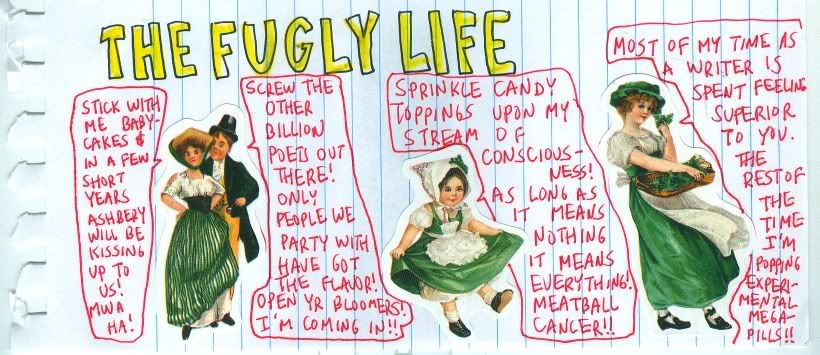 THE FUGLY LIFE
STICK WITH
ME BABY-
CAKES &
IN A FEW
SHORT
YEARS
ASHBERY
WILL BE
KISSING
UP TO
US!
MWA
HA!
SCREW THE
OTHER
BILLION
POETS OUT
THERE!
ONLY
PEOPLE WE
PARTY WITH
HAVE GOT
THE FLAVOR!
OPEN YR BLOOMERS!
I'M COMING IN!!
SPRINKLE CANDY
TOPPINGS UPON MY
STREAM OF
CONSCIOUS-
NESS!
AS LONG AS
IT MEANS
NOTHING
IT MEANS
EVERYTHING!
MEATBALL
CANCER!!
MOST OF MY TIME AS
A WRITER IS
SPENT FEELING
SUPERIOR
TO YOU.
THE
REST OF
THE
TIME
I'M
POPPING
EXPERI-
MENTAL
MEGA-
PILLS!!